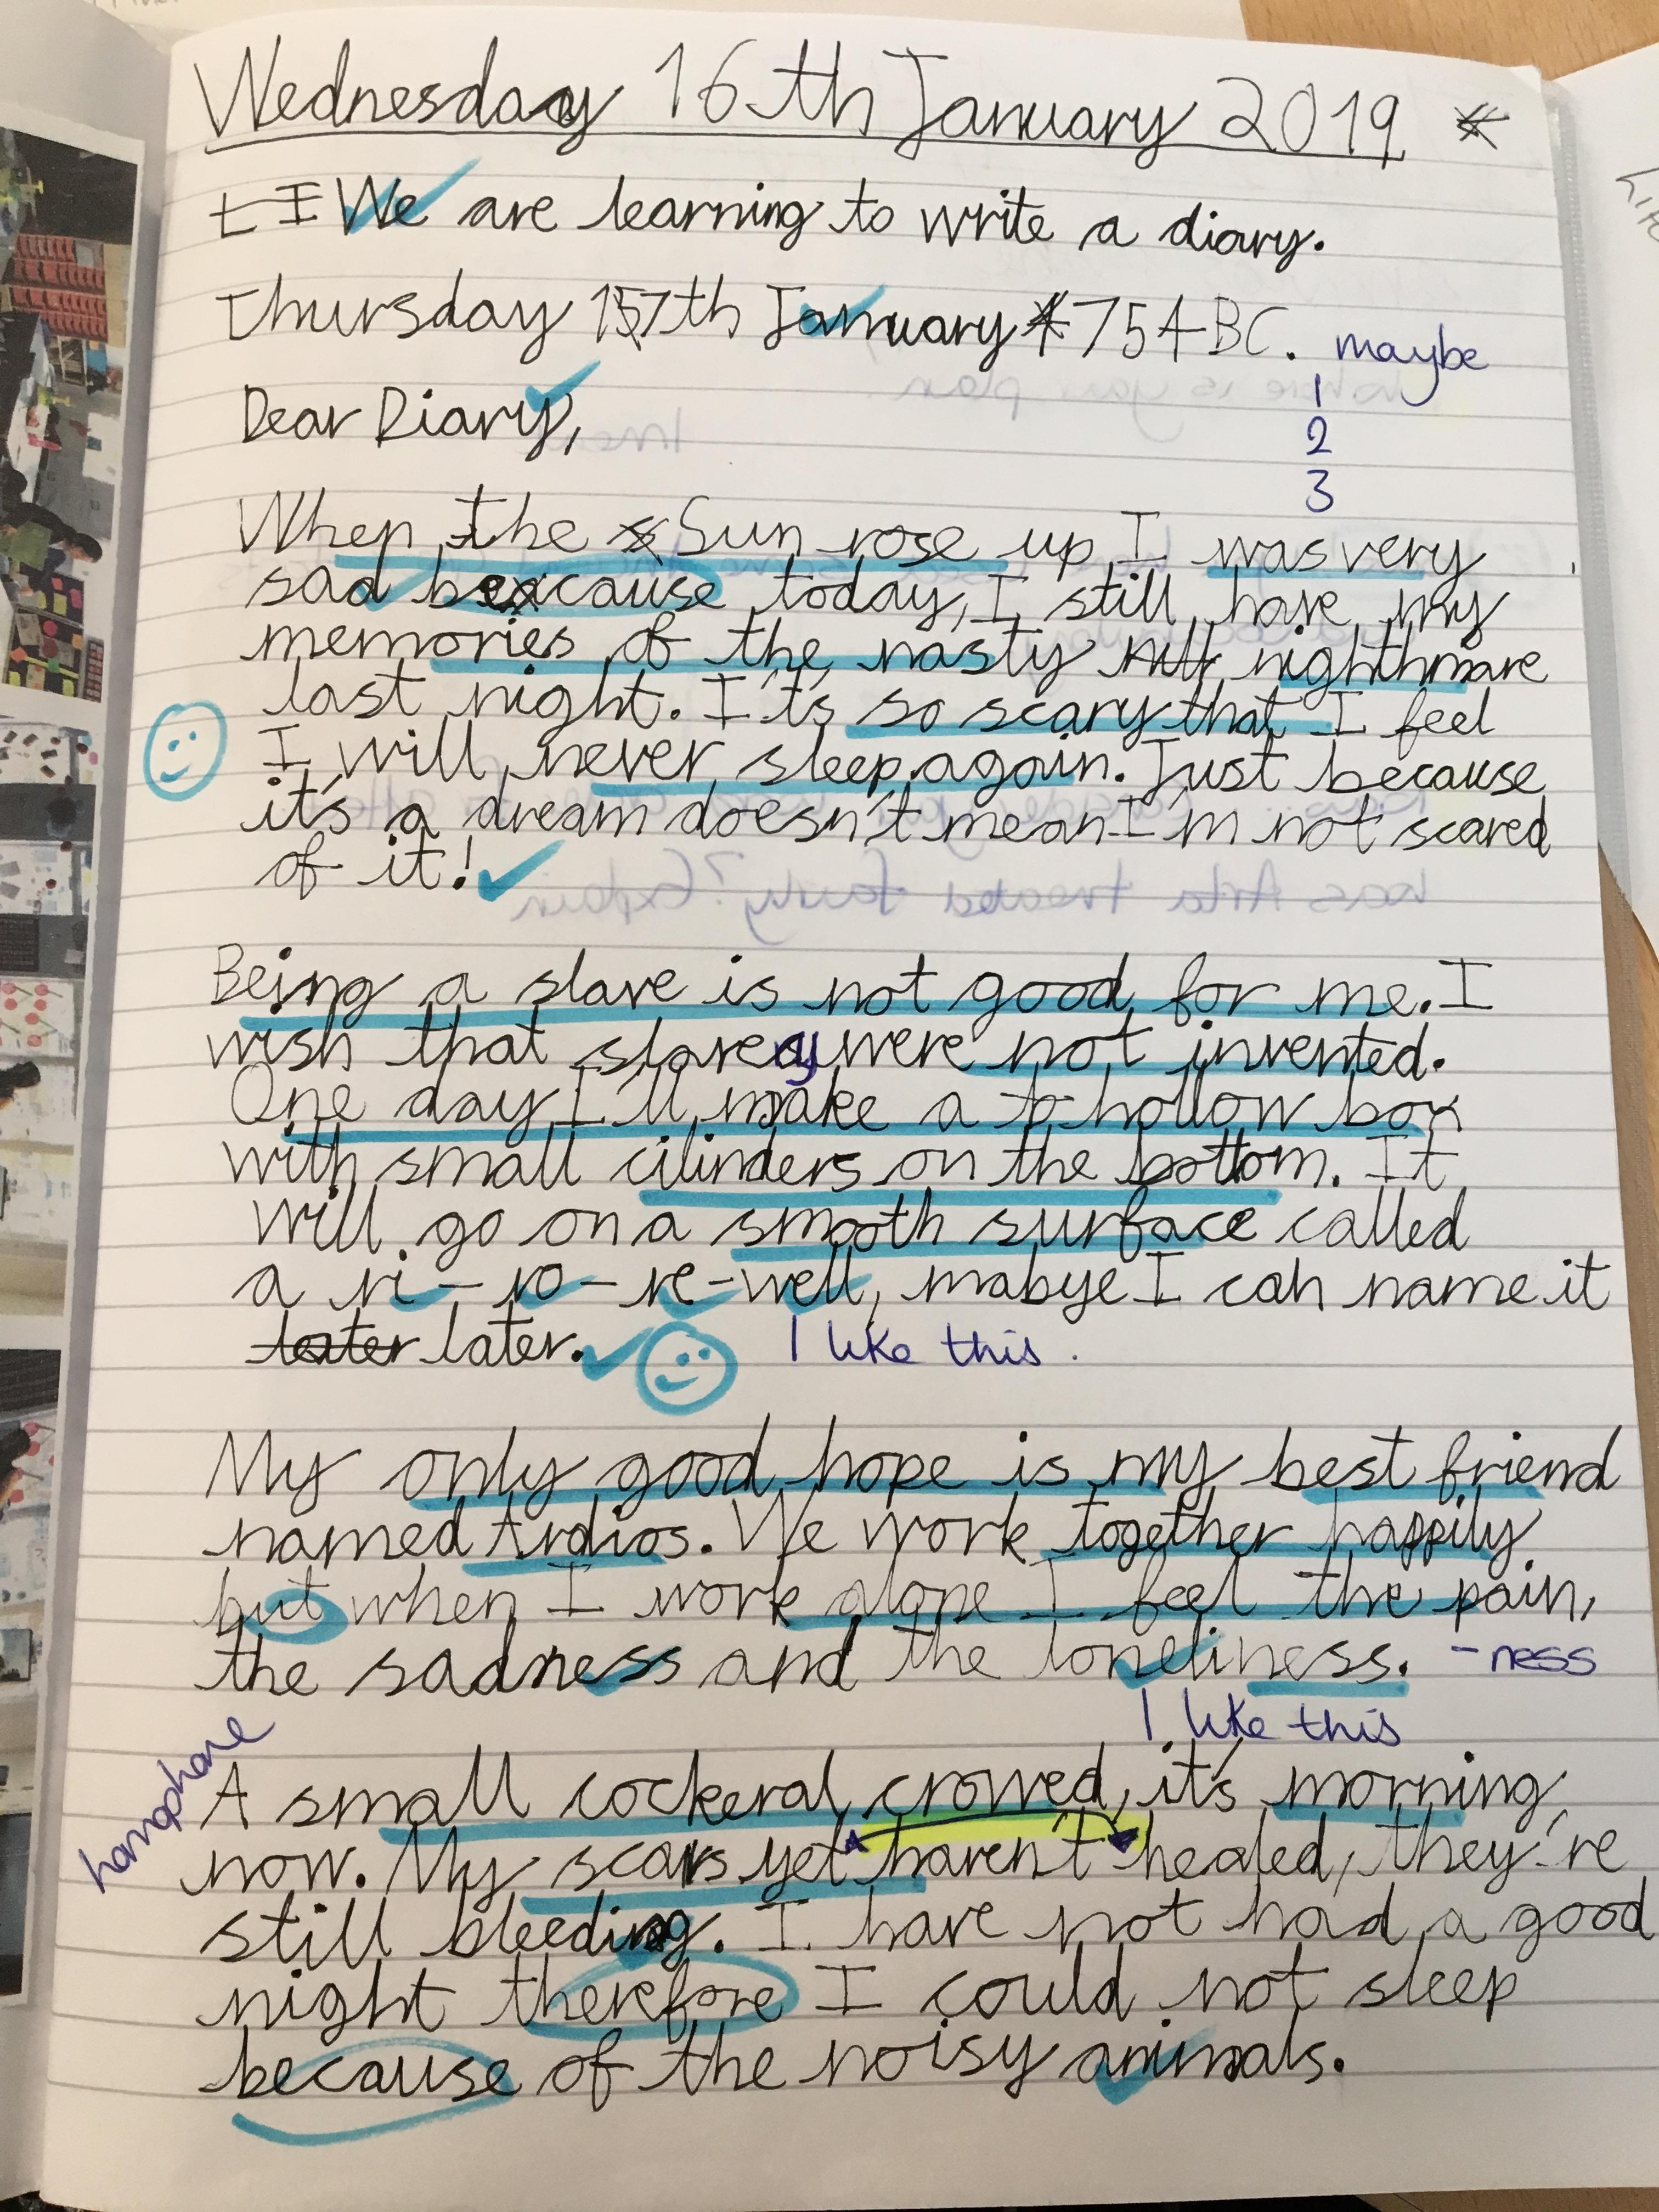 Wednesday 16th January 2019
LI We are learning to write a diary.
Thursday 17th January 754 BC. maybe
1
Dear Diary,
2
3
When the Sun rose up I was very
sad because today, I still have my
memories of the nasty nighthmare
last night. It's so scary that I feel
I will never sleep again. Just because
it's a dream doesn't mean I'm not scared
of it!
Being a slave is not good for me. I
wish that slavery were not invented.
One day I'll make a hollow box
with small cilinders on the bottom. It
will go on a smooth surface called
a ri-ro-re-well, mabye I can name it
later later. I like this.
My only good hope is my best friend
named Ardios. We work together happily
but when I work alone I feel the pain,
the sadness and the loneliness. -ness
I like this
homophone
A small cockeral crowed, it's morning
now. My scars yet haven't healed, they're
still bleeding. I have not had a good
night therefore I could not sleep
because of the noisy animals.